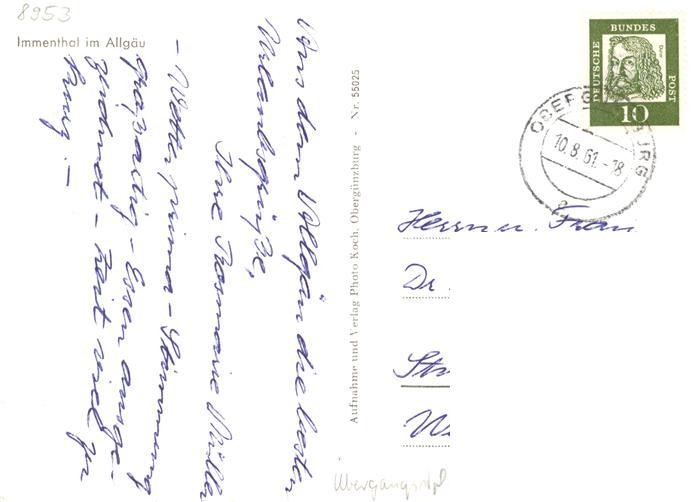 8953
Immenthal im Allgäu
Vons dem Allgäu die besten
Urlaubsgrüße,
Ihre Rosmarie Müller
– Wetter prima – Stimmung
großartig – Essen ausge-
zeichnet – Zeit viel zu
kurz. –
Aufnahme und Verlag Photo Koch, Obergünzburg - Nr. 55025
DEUTSCHE
BUNDES
POST
Dürer
10
10.8.61.-18
a
Herrn u. Frau
Dr.
Übergangsstpl